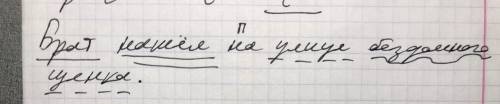 п
Брат нашёл на улице бездомного
щенка.